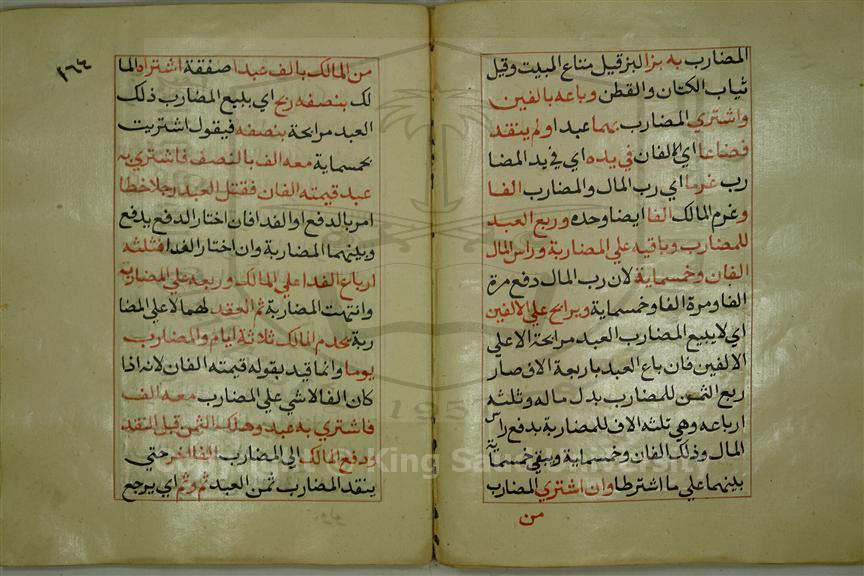 المضارب به بزا البز قيل متاع البيت وقيل
ثياب الكتان والقطن وباعه بالفين
واشتري المضارب بهما عبدا ولم ينقد
فضاعا اي الالفان في يده اي في يد المضا
رب غرما اي رب المال والمضارب الفا
وغرم المالك الفا ايضا وحده وربع العبد
للمضارب وباقيه علي المضاربة وراس المال
الفان وخمسماية لان رب المال دفع مرة
الفا ومرة الفا وخمسماية ويرابح علي الالفين
اي لا يبيع المضارب العبد مرابحة الا علي
الالفين فان باع العبد باربعة الاف صار
ربع الثمن للمضارب بدل ماله وثلثه
ارباعه وهي ثلثه الاف للمضاربة يدفع راس
المال وذلك الفان وخمسماية ويبقي خمسماية
بينهما علي ما اشترطا وان اشتري المضارب
من
٢٦٤
من المالك بالف عبدا صفقة اشتراه الما
لك بنصفه ربح اي يبيع المضارب ذلك
العبد مرابحة بنصفه فيقول اشتريت
بخمسماية معه الف بالنصف فاشتري به
عبد قيمته الفان فقتل العبد رجلا خطا
امر بالدفع او الفدا فان اختار الدفع يدفع
وبينهما المضاربة وان اختار الفدا فثلثه
ارباع الفدا علي المالك وربعه علي المضاربه
وانتهت المضاربة ثم العقد لهما لا علي المضا
ربة يخدم المالك ثلاثة ايام والمضارب
يوما وانما قيد بقوله قيمته الفان لانه اذا
كان الفا لا شي علي المضارب معه الف
فاشتري به عبد وهلك الثمن قبل النقد
ودفع المالك الي المضارب الفا اخر حتي
ينقد المضارب ثمن العبد ثم وثم اي يرجع
Copyright © King Saud University
1957